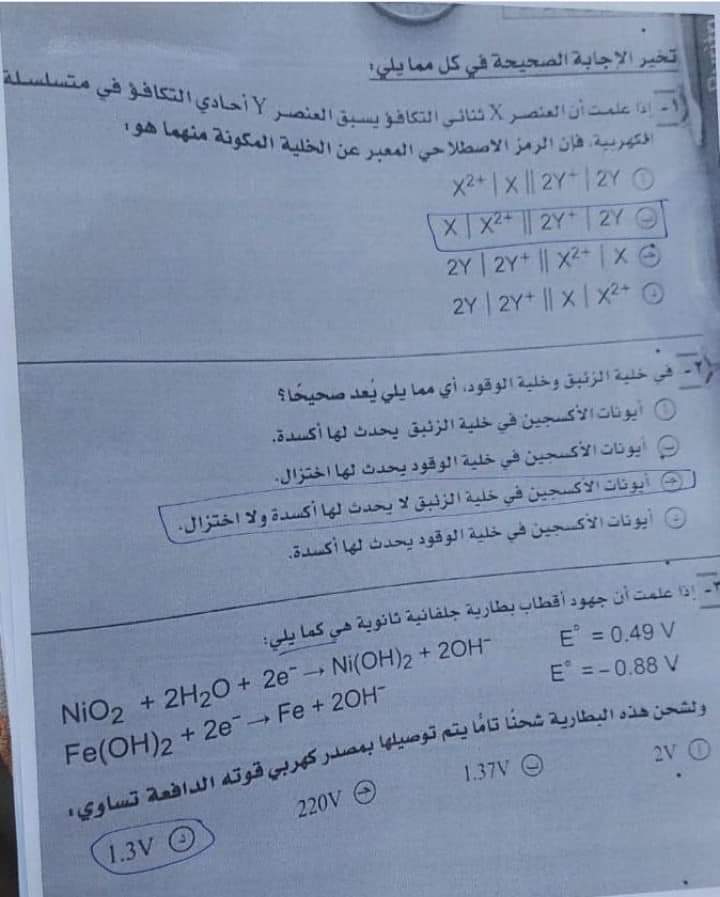 تخير الإجابة الصحيحة في كل مما يلي:
١- إذا علمت أن العنصر X ثنائي التكافؤ يسبق العنصر Y أحادي التكافؤ في متسلسلة
الكهربية، فإن الرمز الاصطلاحي المعبر عن الخلية المكونة منهما هو:
أ X²⁺ | X || 2Y⁺ | 2Y
ب X | X²⁺ || 2Y⁺ | 2Y
ج 2Y | 2Y⁺ || X²⁺ | X
د 2Y | 2Y⁺ || X | X²⁺
٢- في خلية الزئبق وخلية الوقود، أي مما يلي يُعد صحيحًا؟
أ أيونات الأكسجين في خلية الزئبق يحدث لها أكسدة.
ب أيونات الأكسجين في خلية الوقود يحدث لها اختزال.
ج أيونات الأكسجين في خلية الزئبق لا يحدث لها أكسدة ولا اختزال.
د أيونات الأكسجين في خلية الوقود يحدث لها أكسدة.
٣- إذا علمت أن جهود أقطاب بطارية جلفانية ثانوية هي كما يلي:
NiO₂ + 2H₂O + 2e⁻ → Ni(OH)₂ + 2OH⁻ E° = 0.49 V
Fe(OH)₂ + 2e⁻ → Fe + 2OH⁻ E° = – 0.88 V
ولشحن هذه البطارية شحنًا تامًا يتم توصيلها بمصدر كهربي قوته الدافعة تساوي:
أ 2V ب 1.37V ج 220V د 1.3V